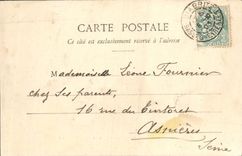 CARTE POSTALE
Ce côté est exclusivement réservé à l'adresse
Mademoiselle Léone Fournier
chez ses parents,
16 rue du Tintoret
Asnières
Seine